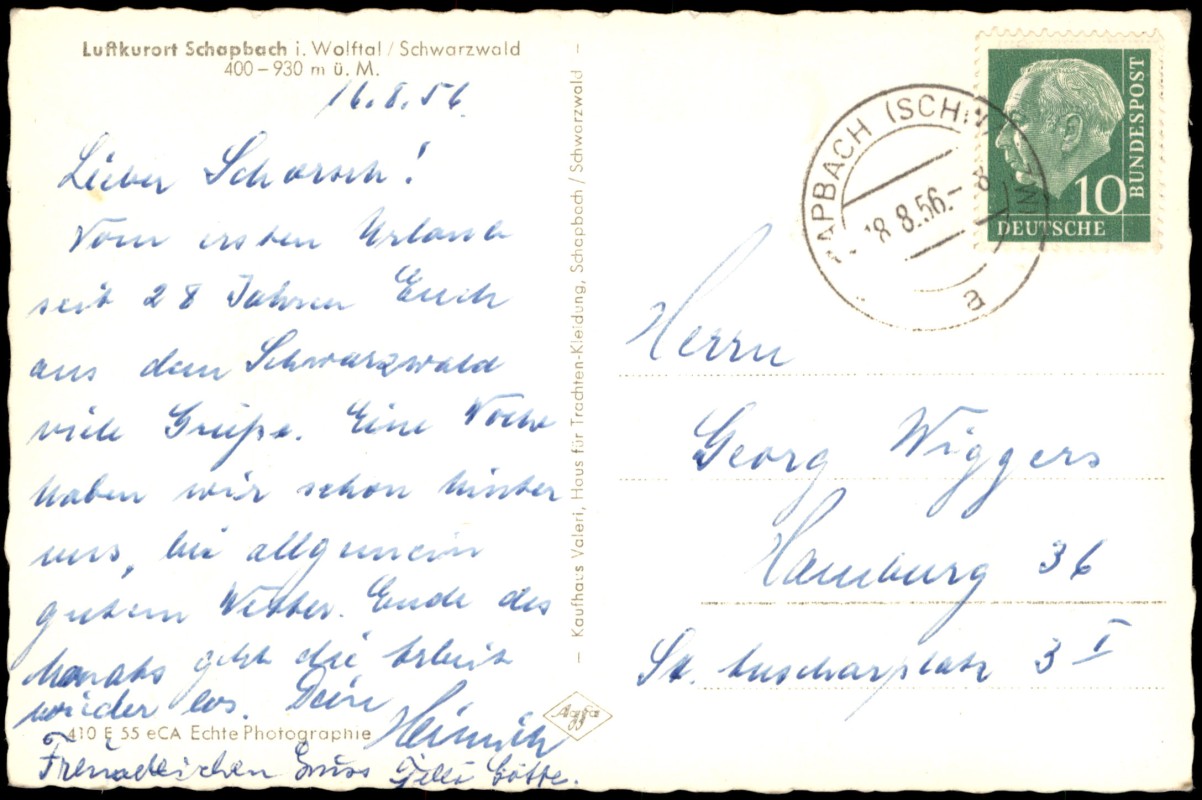 Luftkurort Schapbach i. Wolftal / Schwarzwald
400 – 930 m ü. M.
16.8.56.
Lieber Schorsch!
Vom ersten Urlaub
seit 28 Jahren Euch
aus dem Schwarzwald
viele Grüße. Eine Woche
haben wir schon hinter
uns, bei allgemein
gutem Wetter. Ende des
Monats geht die Arbeit
wieder los. Dein
Heinrich
410 E 55 eCA Echte Photographie
Gruss
– Kaufhaus Valeri, Haus für Trachten-Kleidung, Schapbach / Schwarzwald –
Agfa
APBACH (SCH
18.8.56.– 8
a
10
DEUTSCHE
BUNDESPOST
Herrn
Georg Wiggers
Hamburg 36
St. Anscharplatz 3 I